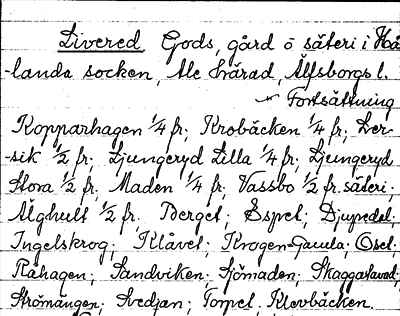 Livered Gods, gård o säteri i Hå
-landa socken, Ale härad, Älfsborgs l.
Fortsättning
Kopparhagen 1/4 fr; Krobäcken 1/4 fr; Ler-
sik 1/2 fr; Ljungeryd Lilla 1/4 fr; Ljungeryd
Stora 1/2 fr; Maden 1/4 fr; Vassbo 1/2 fr. säteri;
Älghult 1/2 fr. Berget; Espet; Djupedal;
Ingelskrog; Klåvet; Krogen-Gamla;
Råhagen; Sandviken; Sjömaden; Skaggatavad;
Strömängen; Svedjan; Torpet. Klevbäcken.